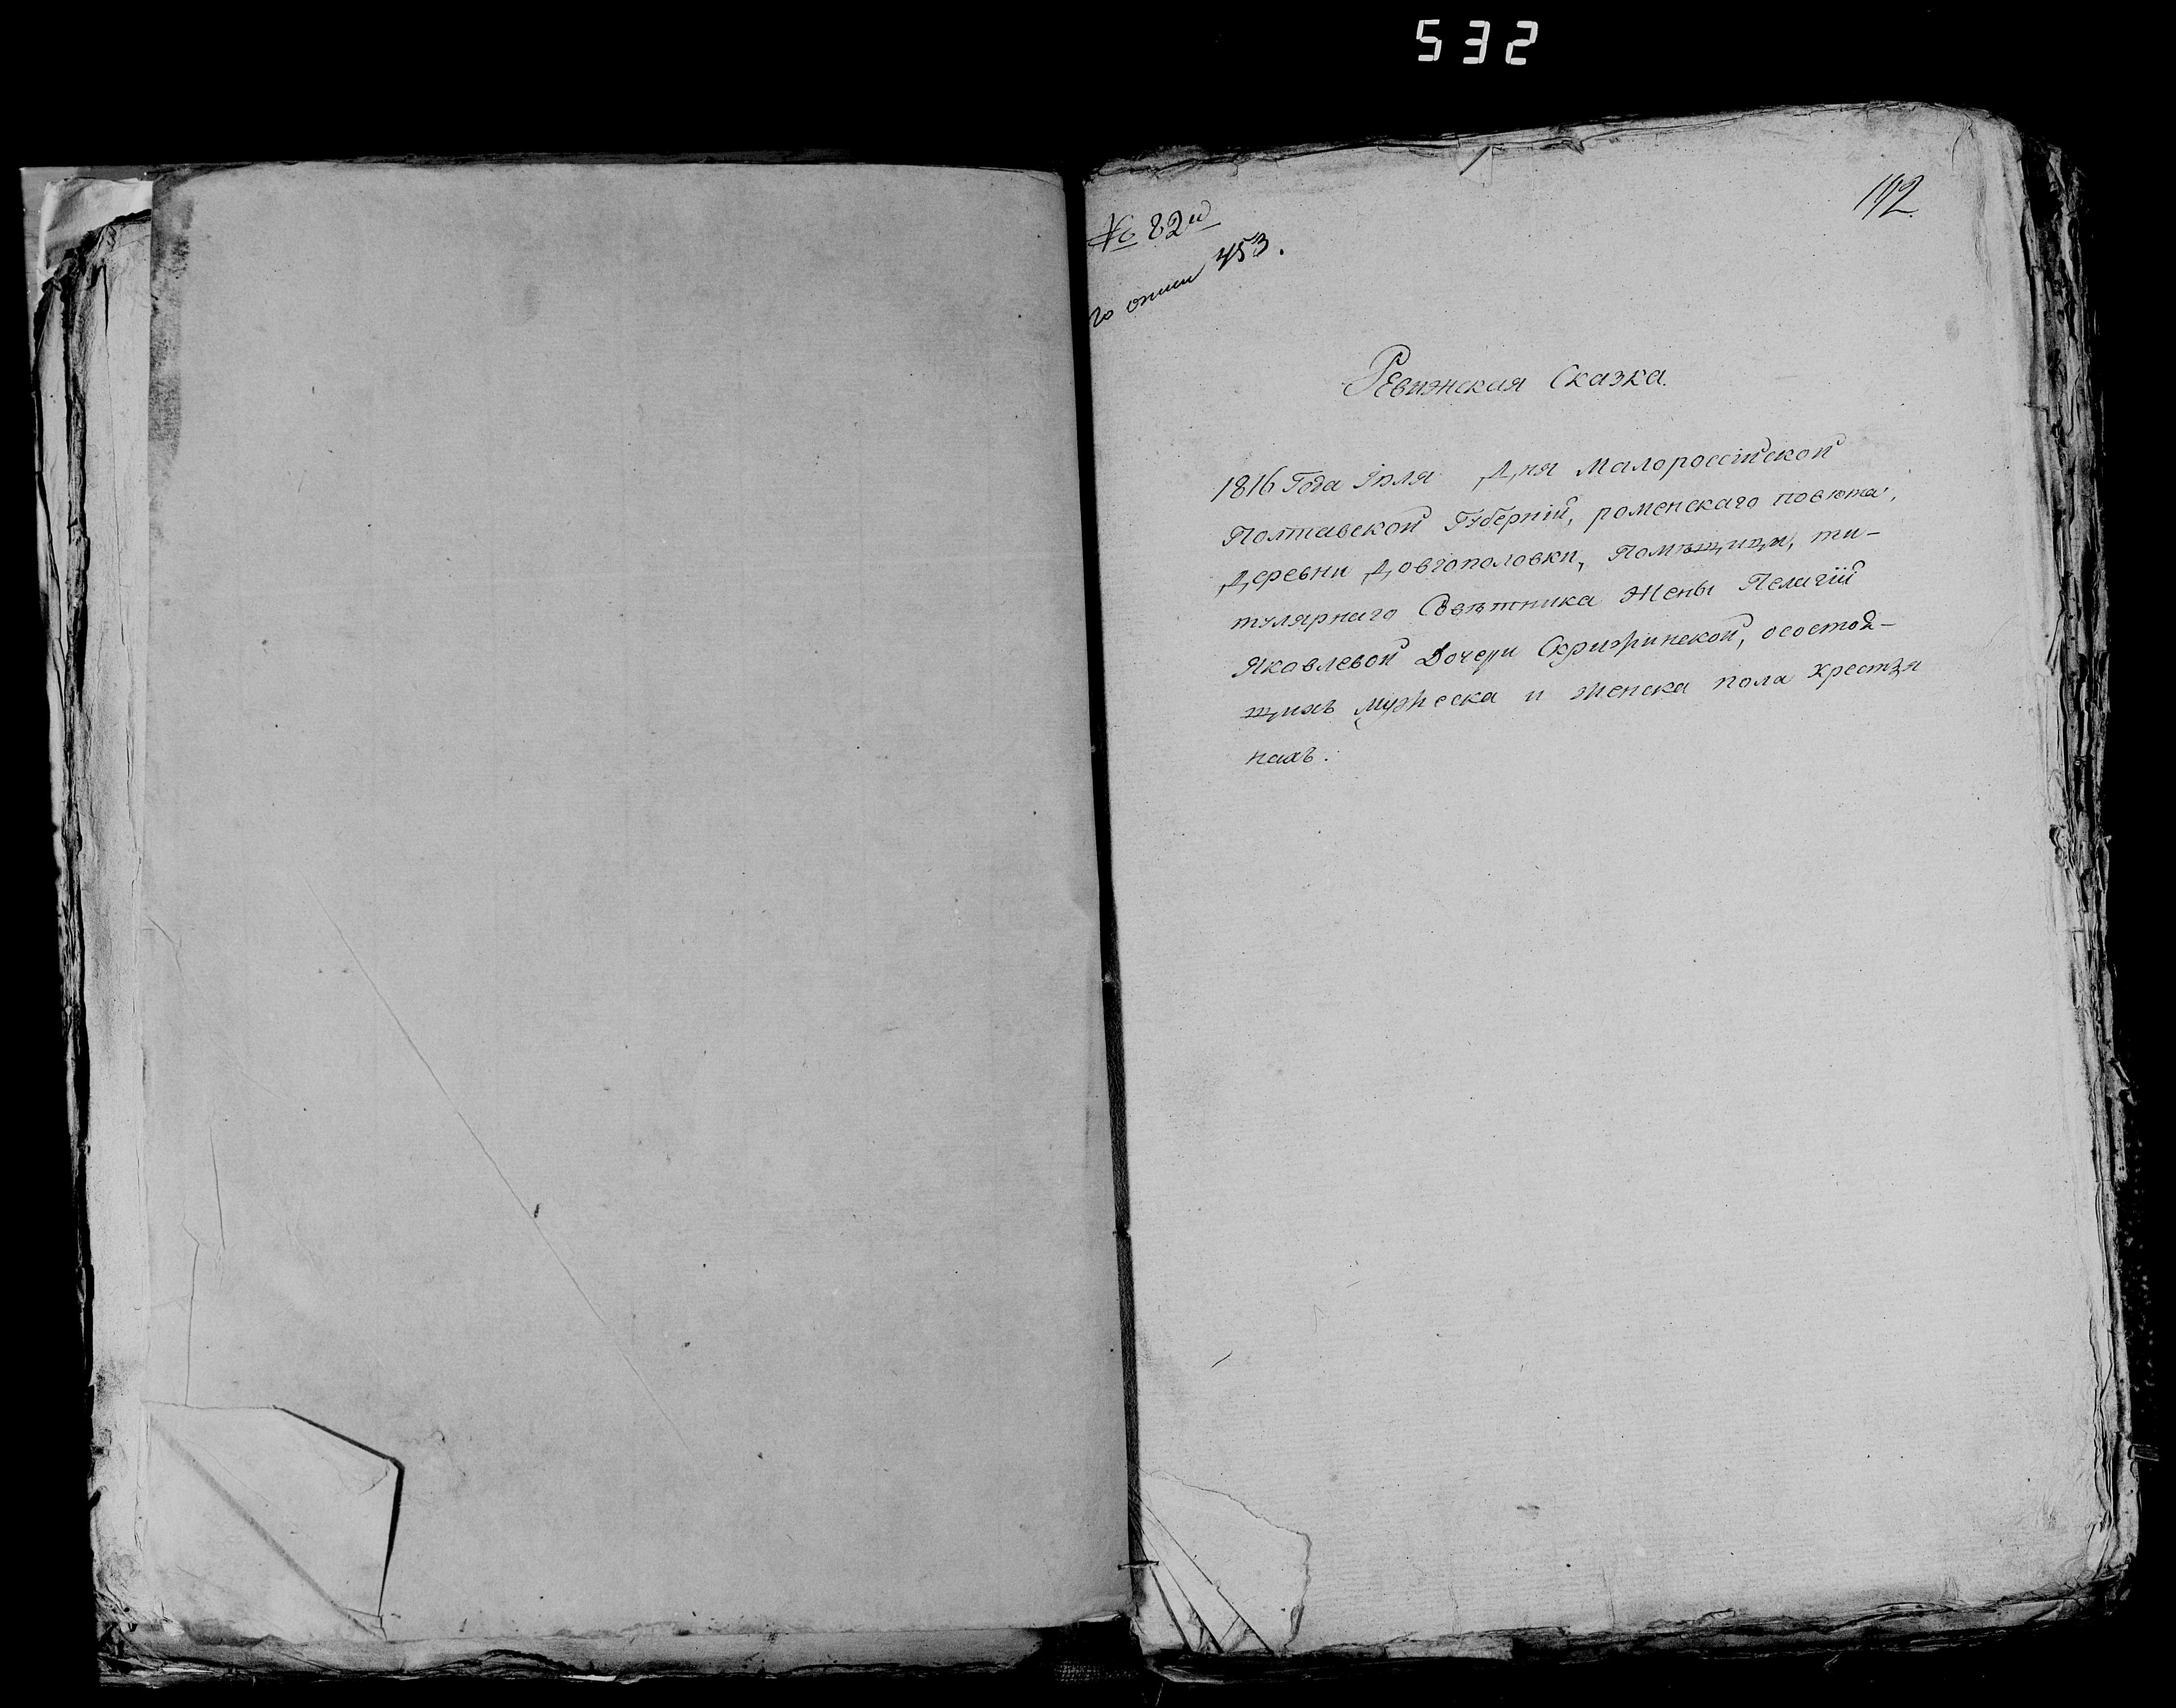 532
192
№ 82й
по описи 453.
Ревижская Сказка.
1816 Года Іюля Дня Малороссійской
Полтавской Губерніи, роменскаго повѣта,
Деревни Довгополовки, Помѣщицы, ти-
тулярнаго Совѣтника Жены Пелагіи
Яковлевой Дочери Скрижинской, осостоя-
щихъ мужеска и женска пола крестья
нахъ.